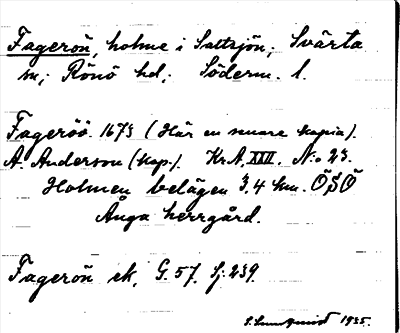 Fagerön, holme i Saltsjön; Svärta
sn; Rönö hd; Söderm. l.
Fageröö. 1673 (Här en senare kopia).
A. Anderson (kop.). Kr.A, XXII. N:o 23.
Holmen belägen 3,4 km. ÖSÖ
Ånga herrgård.
Fagerön ek, G. 57. Sj: 239.
1935.